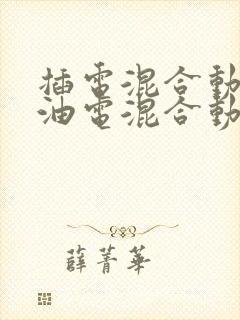 插電混合動
油電混合動
薛菁華